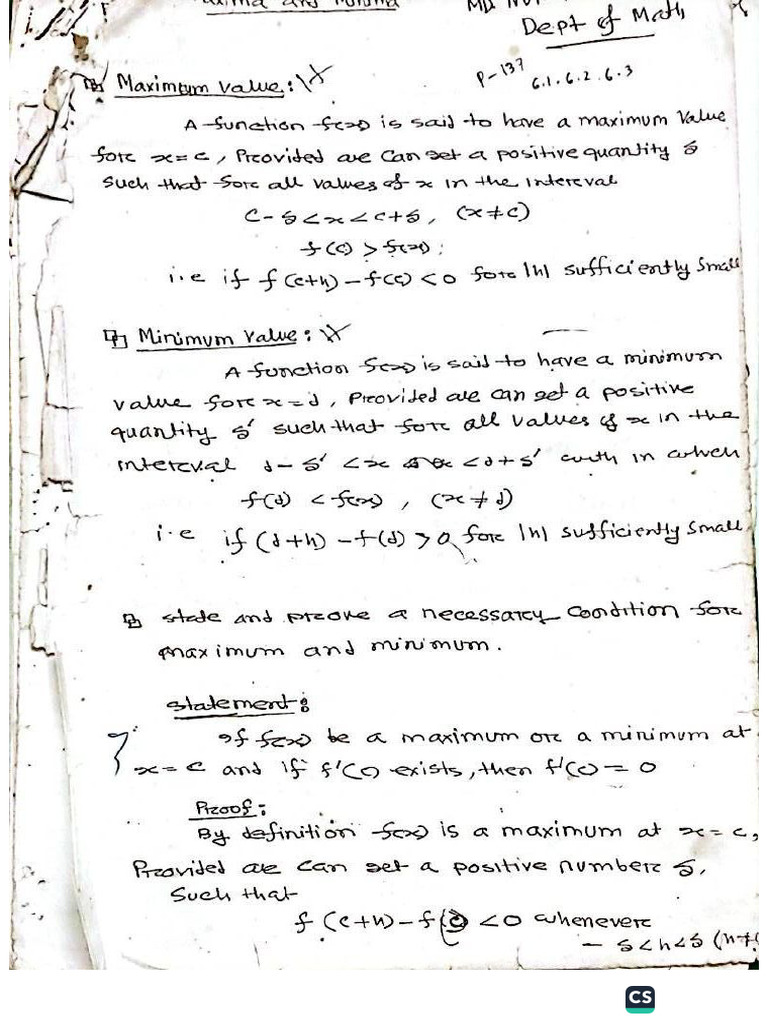 Maxima and Minima
Dept of Math
P-137
6.1.6.2.6.3
Maximum value:
A function f(x) is said to have a maximum value
fore x=c, Provided we can get a positive quantity δ
such that fore all values of x in the interval
c-δ<x<c+δ, (x≠c)
f(c) > f(x);
i.e if f(c+h)-f(c)<0 fore |h| sufficiently small
Minimum value:
A function f(x) is said to have a minimum
value fore x=d, Provided we can get a positive
quantity δ' such that fore all values of x in the
interval d-δ' <x <d+δ' with in which
f(d) < f(x), (x≠d)
i.e if (d+h)-f(d)>0 fore |h| sufficiently small
state and prove a necessary condition fore
maximum and minimum.
Statement:
If f(x) be a maximum ore a minimum at
x=c and if f'(c) exists, then f'(c)=0
Proof:
By definition f(x) is a maximum at x=c,
Provided we can get a positive number δ,
Such that
f(c+h)-f(c) <0 whenever
-δ<h<δ (h≠0
CS